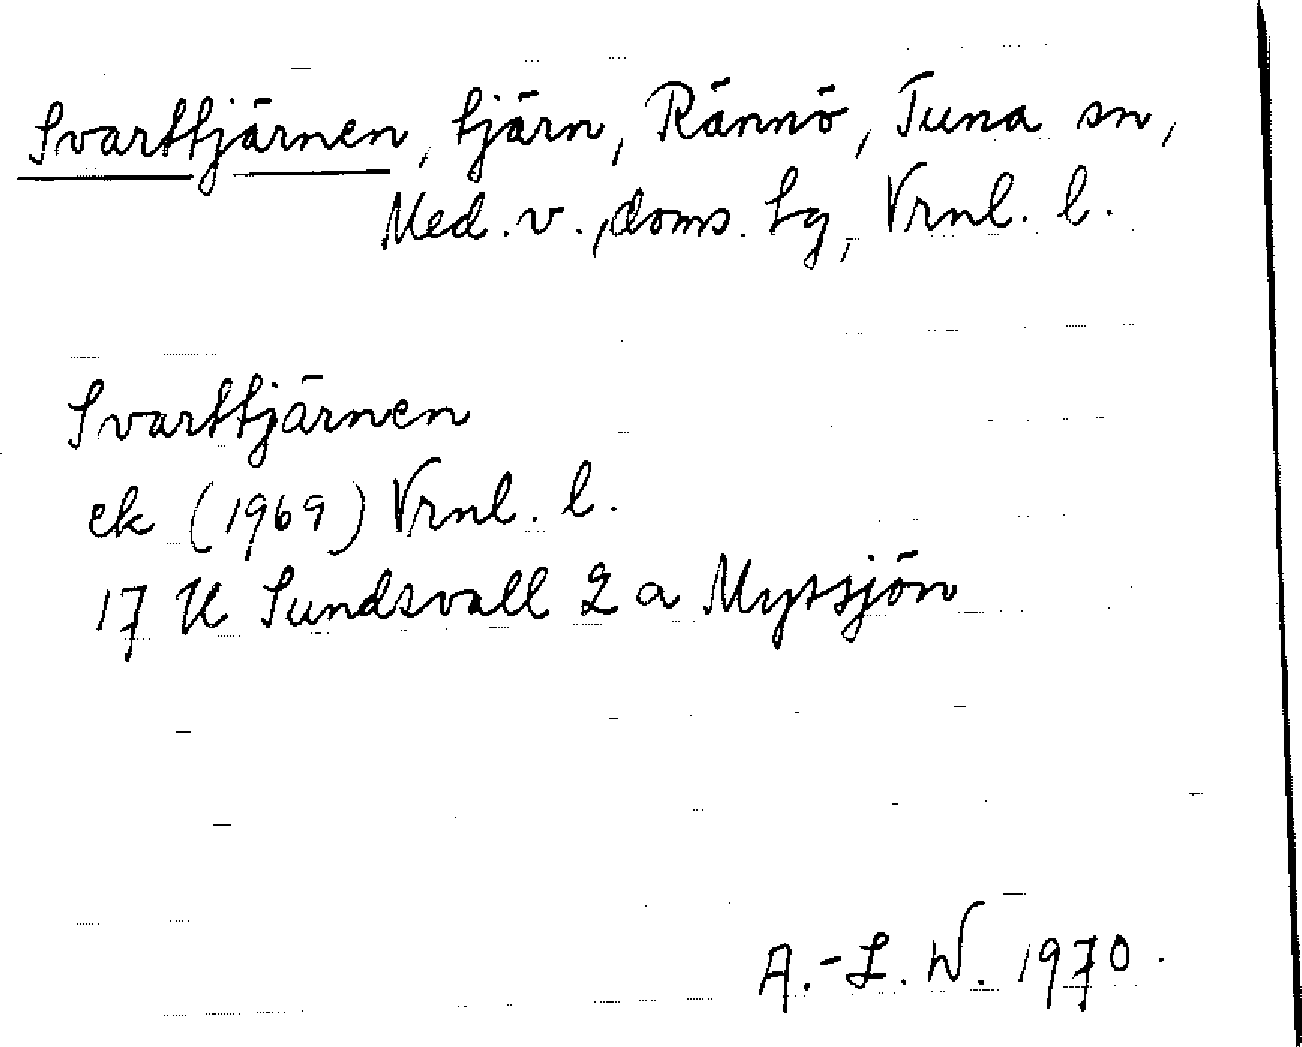 Svarttjärnen, tjärn, Rännö, Tuna sn,
Med. v., doms. tg, Vrnl. l.
Svarttjärnen
ek (1969) Vrnl. l.
17 H Sundsvall 2 a Mytsjön
A.-L. W. 1970.